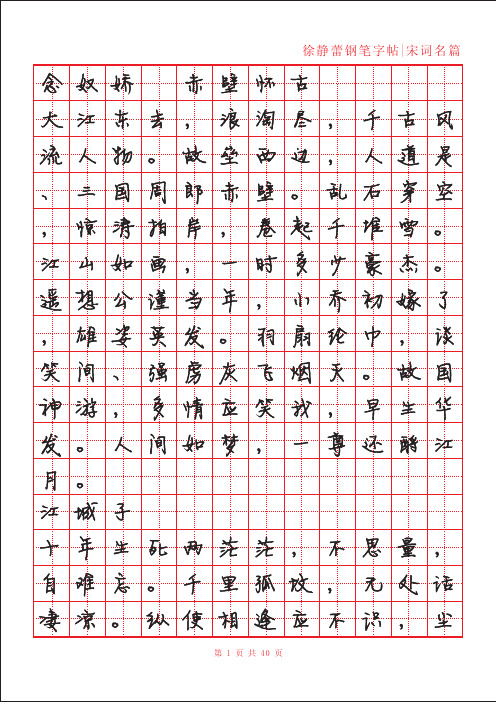 徐静蕾钢笔字帖|宋词名篇
念奴娇 赤壁怀古
大江东去，浪淘尽，千古风
流人物。故垒西边，人道是
、三国周郎赤壁。乱石穿空
，惊涛拍岸，卷起千堆雪。
江山如画，一时多少豪杰。
遥想公谨当年，小乔初嫁了
，雄姿英发。羽扇纶巾，谈
笑间、强虏灰飞烟灭。故国
神游，多情应笑我，早生华
发。人间如梦，一尊还酹江
月。
江城子
十年生死两茫茫，不思量，
自难忘。千里孤坟，无处话
凄凉。纵使相逢应不识，尘
第 1 页 共 40 页